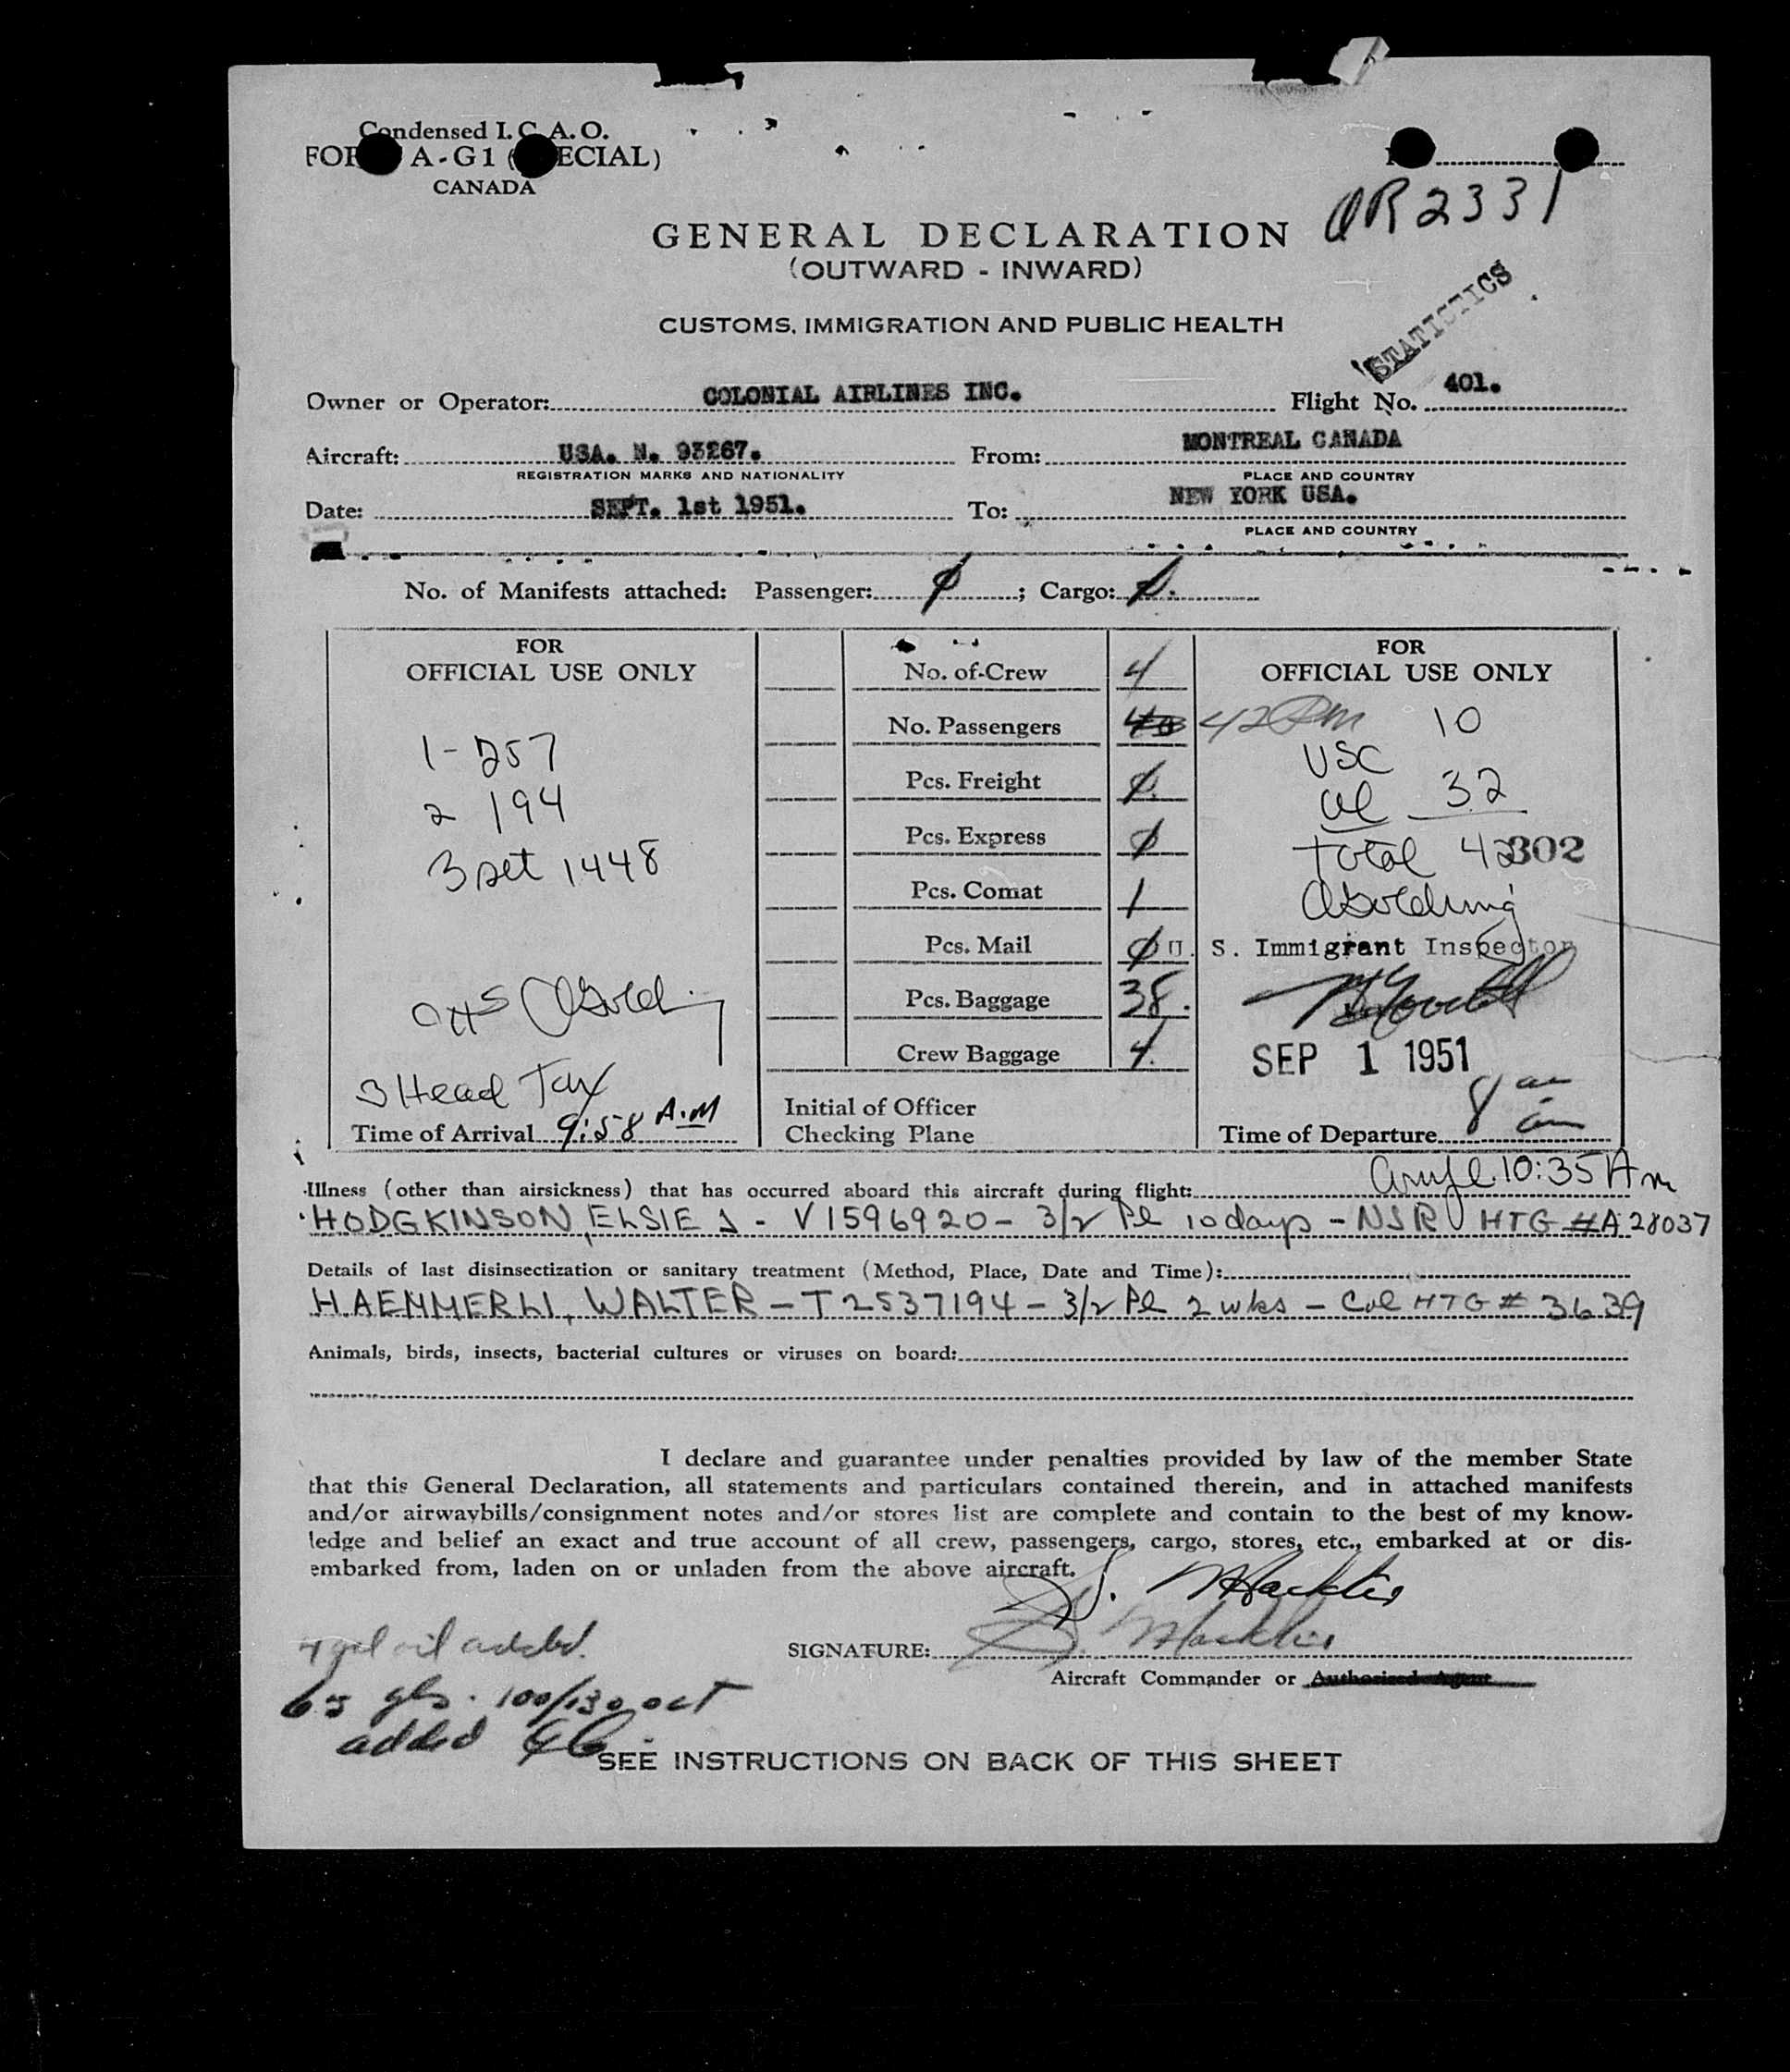 Condensed I. C. A. O.
A - G1 ( ECIAL)
CANADA
QR2331
GENERAL DECLARATION
(OUTWARD - INWARD)
STATISTICS
CUSTOMS, IMMIGRATION AND PUBLIC HEALTH
Owner or Operator: COLONIAL AIRLINES INC. Flight No. 401.
Aircraft: USA. N. 93267. From: MONTREAL CANADA
REGISTRATION MARKS AND NATIONALITY PLACE AND COUNTRY
Date: SEPT. 1st 1951. To: NEW YORK USA.
PLACE AND COUNTRY
No. of Manifests attached: Passenger: ∅ ; Cargo: ∅.
FOR
OFFICIAL USE ONLY
1-257
2 194
3 set 1448
3 Head Tax
Time of Arrival 9:58 A.M
No. of Crew 4
No. Passengers 42
Pcs. Freight ∅.
Pcs. Express ∅
Pcs. Comat 1
Pcs. Mail ∅
Pcs. Baggage 38.
Crew Baggage 4.
Initial of Officer
Checking Plane
FOR
OFFICIAL USE ONLY
10
USC
32
Total 42 302
U. S. Immigrant Inspector
SEP 1 1951
Time of Departure 8
10:35 Am
Illness (other than airsickness) that has occurred aboard this aircraft during flight:
HODGKINSON, ELSIE J - V1596920 - 3/2 Pl 10 days - NSR HTG #A 28037
Details of last disinsectization or sanitary treatment (Method, Place, Date and Time):
HAEMMERLI, WALTER - T2537194 - 3/2 Pl 2 wks - HTG # 3639
Animals, birds, insects, bacterial cultures or viruses on board:
I declare and guarantee under penalties provided by law of the member State
that this General Declaration, all statements and particulars contained therein, and in attached manifests
and/or airwaybills/consignment notes and/or stores list are complete and contain to the best of my know-
ledge and belief an exact and true account of all crew, passengers, cargo, stores, etc., embarked at or dis-
embarked from, laden on or unladen from the above aircraft.
gal oil added.
SIGNATURE:
Aircraft Commander or Authorized Agent
65 gls. 100/130 oct
added
SEE INSTRUCTIONS ON BACK OF THIS SHEET